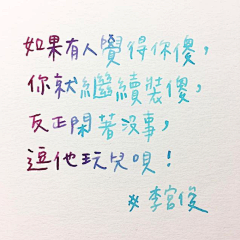 如果有人覺得你傻，
你就繼續裝傻，
反正閑著沒事，
逗他玩兒唄！
※李宮俊